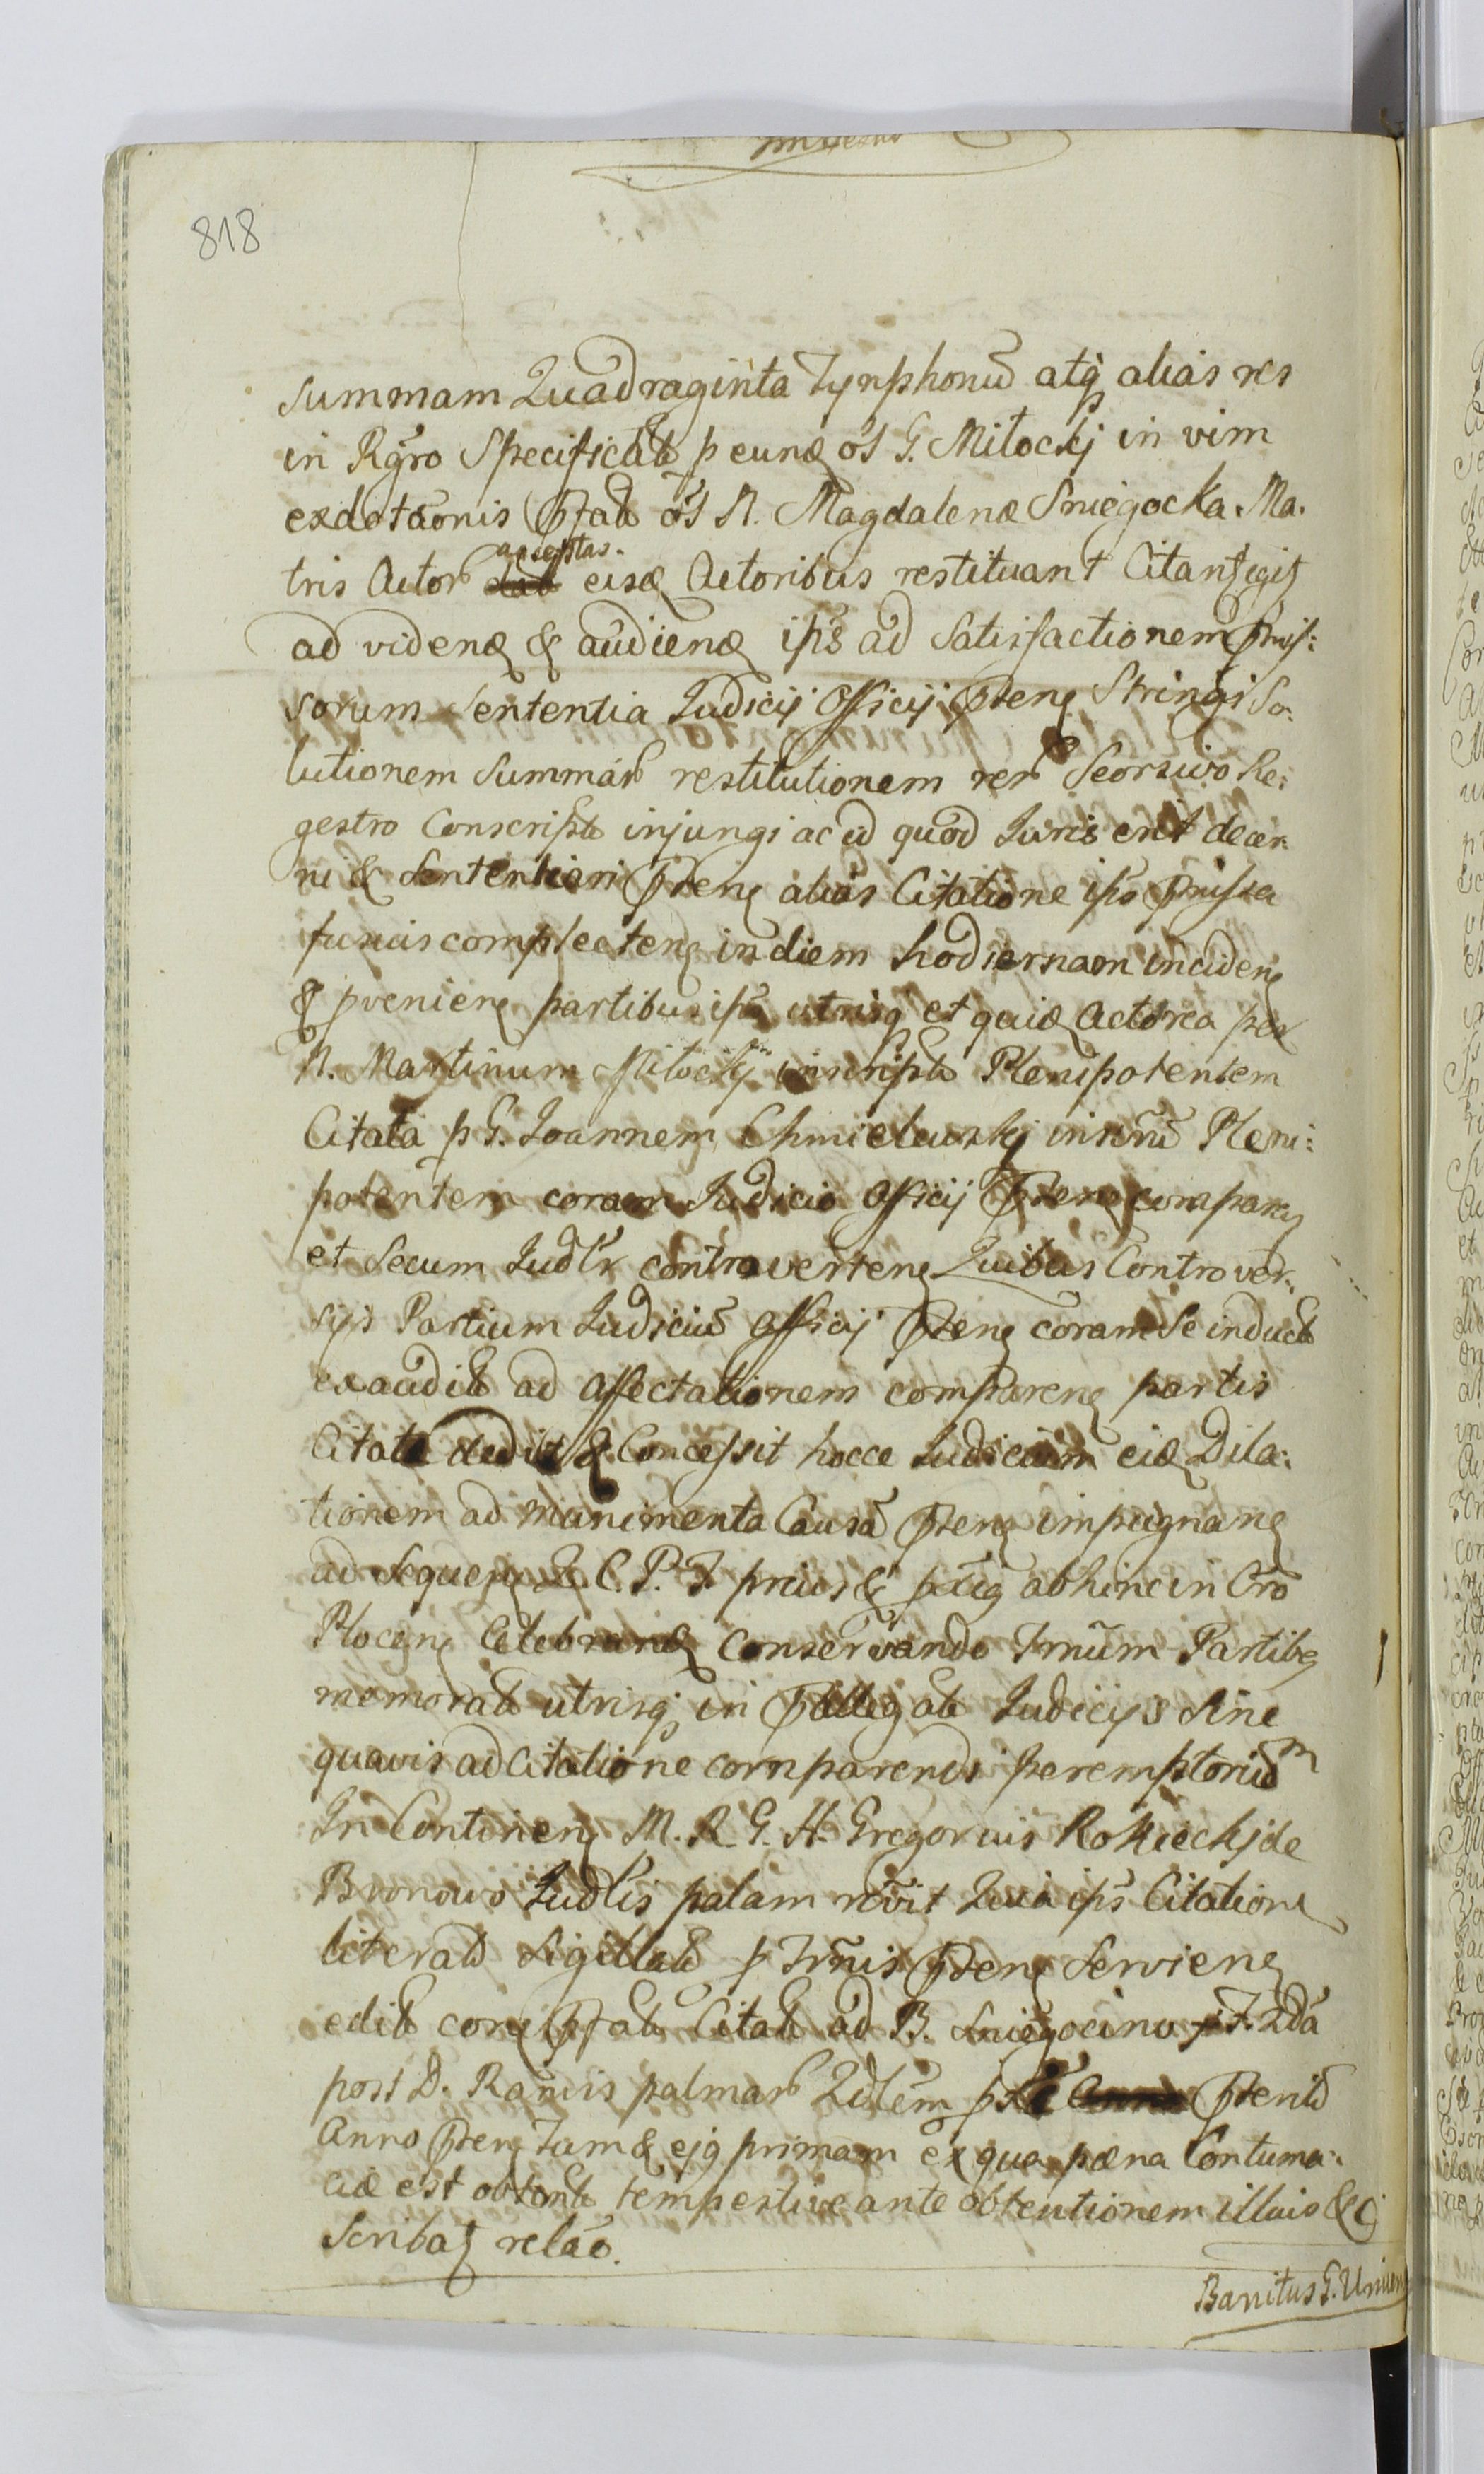 818
summam Quadraginta Tynphonū atq alias res
in Rgro Specificatt p eunq ol G. Miłockj in vim
exdotaonis Pfatt ol N. Magdalenæ Sniegocka Ma.
tris Actor acceptas eisq Actoribus restituant Citantq
ad videnq & audienq ips ad Satisfactionem Pmis:
sorum Sententia Judicij Officij Ptenq Stringi So:
lutionem Summar restitutionem rer Seorsivo Re:
gestro Conscriptt injungi ac id quod Juris erit decer:
ni & Sententiari Ptenq alias Citatione ips Pmissa
fusius complectenq in diem hodiernam incidenq
& pvenienq partibus ips utrisq et quiq Actorea per
N. Martinum Miłockj inscriptt Plenipotentem
Citata p G. Joannem Chmielewskj inscrū Pleni:
potentem coram Judicio Officij Ptenq comparenq
et Secum Judlr controvertenq Quibus Controver:
sijs Partium Judiciū Officij Ptenq coram Se inductt
exauditt ad affectationem comparenq partis
Citatæ dedit & Concessit hocce Judicium eiq Dila:
tionem ad munimenta Causā Ptenq impugnanq
ad Sequenq C. P. T. prius & pxiq abhinc in Cro
Plocenq Celebranq conservando Trnūm Partibq
memoratt utrisq in Pallegatt Judicijs Sine
quavis adcitatione comparendi peremptoriūm
In Continenq M. R G. H. Gregorius Rokickj de
Bronowo Judlis palam rēvit Quia ips Citatione
literatt Sigillatt p Trnis Ptenq Servienq
editt conq Pfatt Citatt ad B. Sniegocino f. 2dā
post D. Ramis palmar Qdlem pxie Pteritt
Anno Ptenq Tam & ejq primam ex qua pæna Contuma:
ciæ est obtentt tempestive ante obtentionem illius &c
Scribaq relāo.
Banitus G. Uninenq